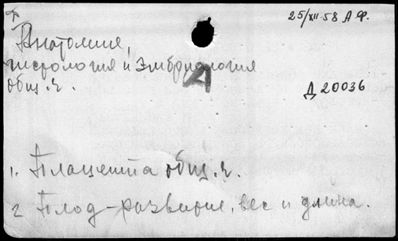 25/XII-58 А Ф.
Анатомия,
гистология и эмбриология
общ. ч.
А
Д 20036
1. Плацента общ. ч.
2 Плод - развитие, вес и длина.